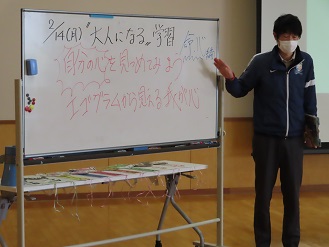 2/14(月)"大人になる"学習
自分の心を見つめてみよう
エゴグラムから見える我が心